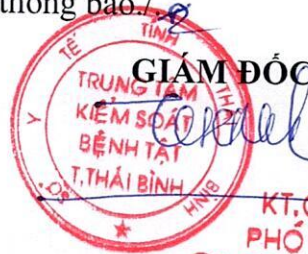 thông báo./.
GIÁM ĐỐC
SỞ Y TẾ TỈNH THÁI BÌNH
TRUNG TÂM
KIỂM SOÁT
BỆNH TẬT
T.THÁI BÌNH
KT.
PHÓ